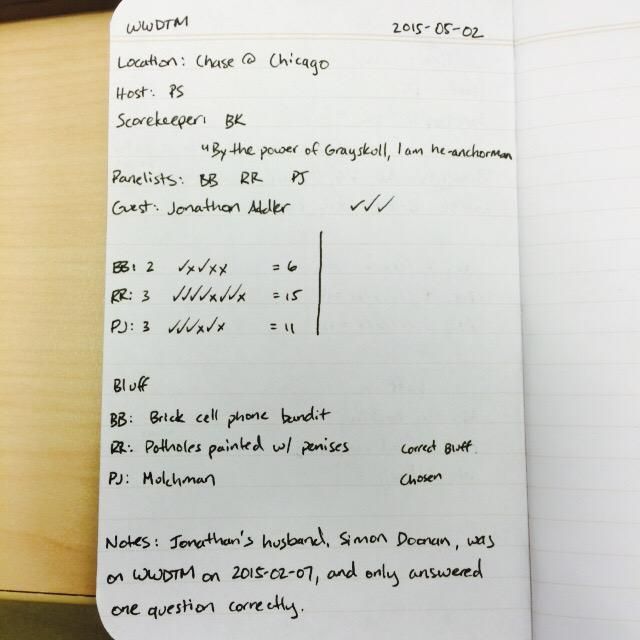 WWDTM 2015-05-02
Location: Chase @ Chicago
Host: PS
Scorekeeper: BK
"By the power of Grayskull, I am he-anchorman
Panelists: BB RR PJ
Guest: Jonathon Adler ✓✓✓
BB: 2 ✓x✓xx = 6
RR: 3 ✓✓✓✓x✓✓x = 15
PJ: 3 ✓✓✓x✓x = 11
Bluff
BB: Brick cell phone bandit
RR: Potholes painted w/ penises Correct Bluff.
PJ: Mulchman Chosen
Notes: Jonathan's husband, Simon Doonan, was
on WWDTM on 2015-02-07, and only answered
one question correctly.